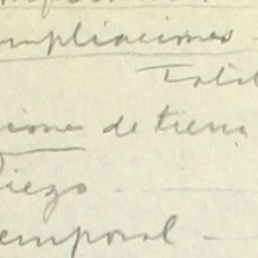 ampliaciones
Total
ciones de tierra
Diego
emporal